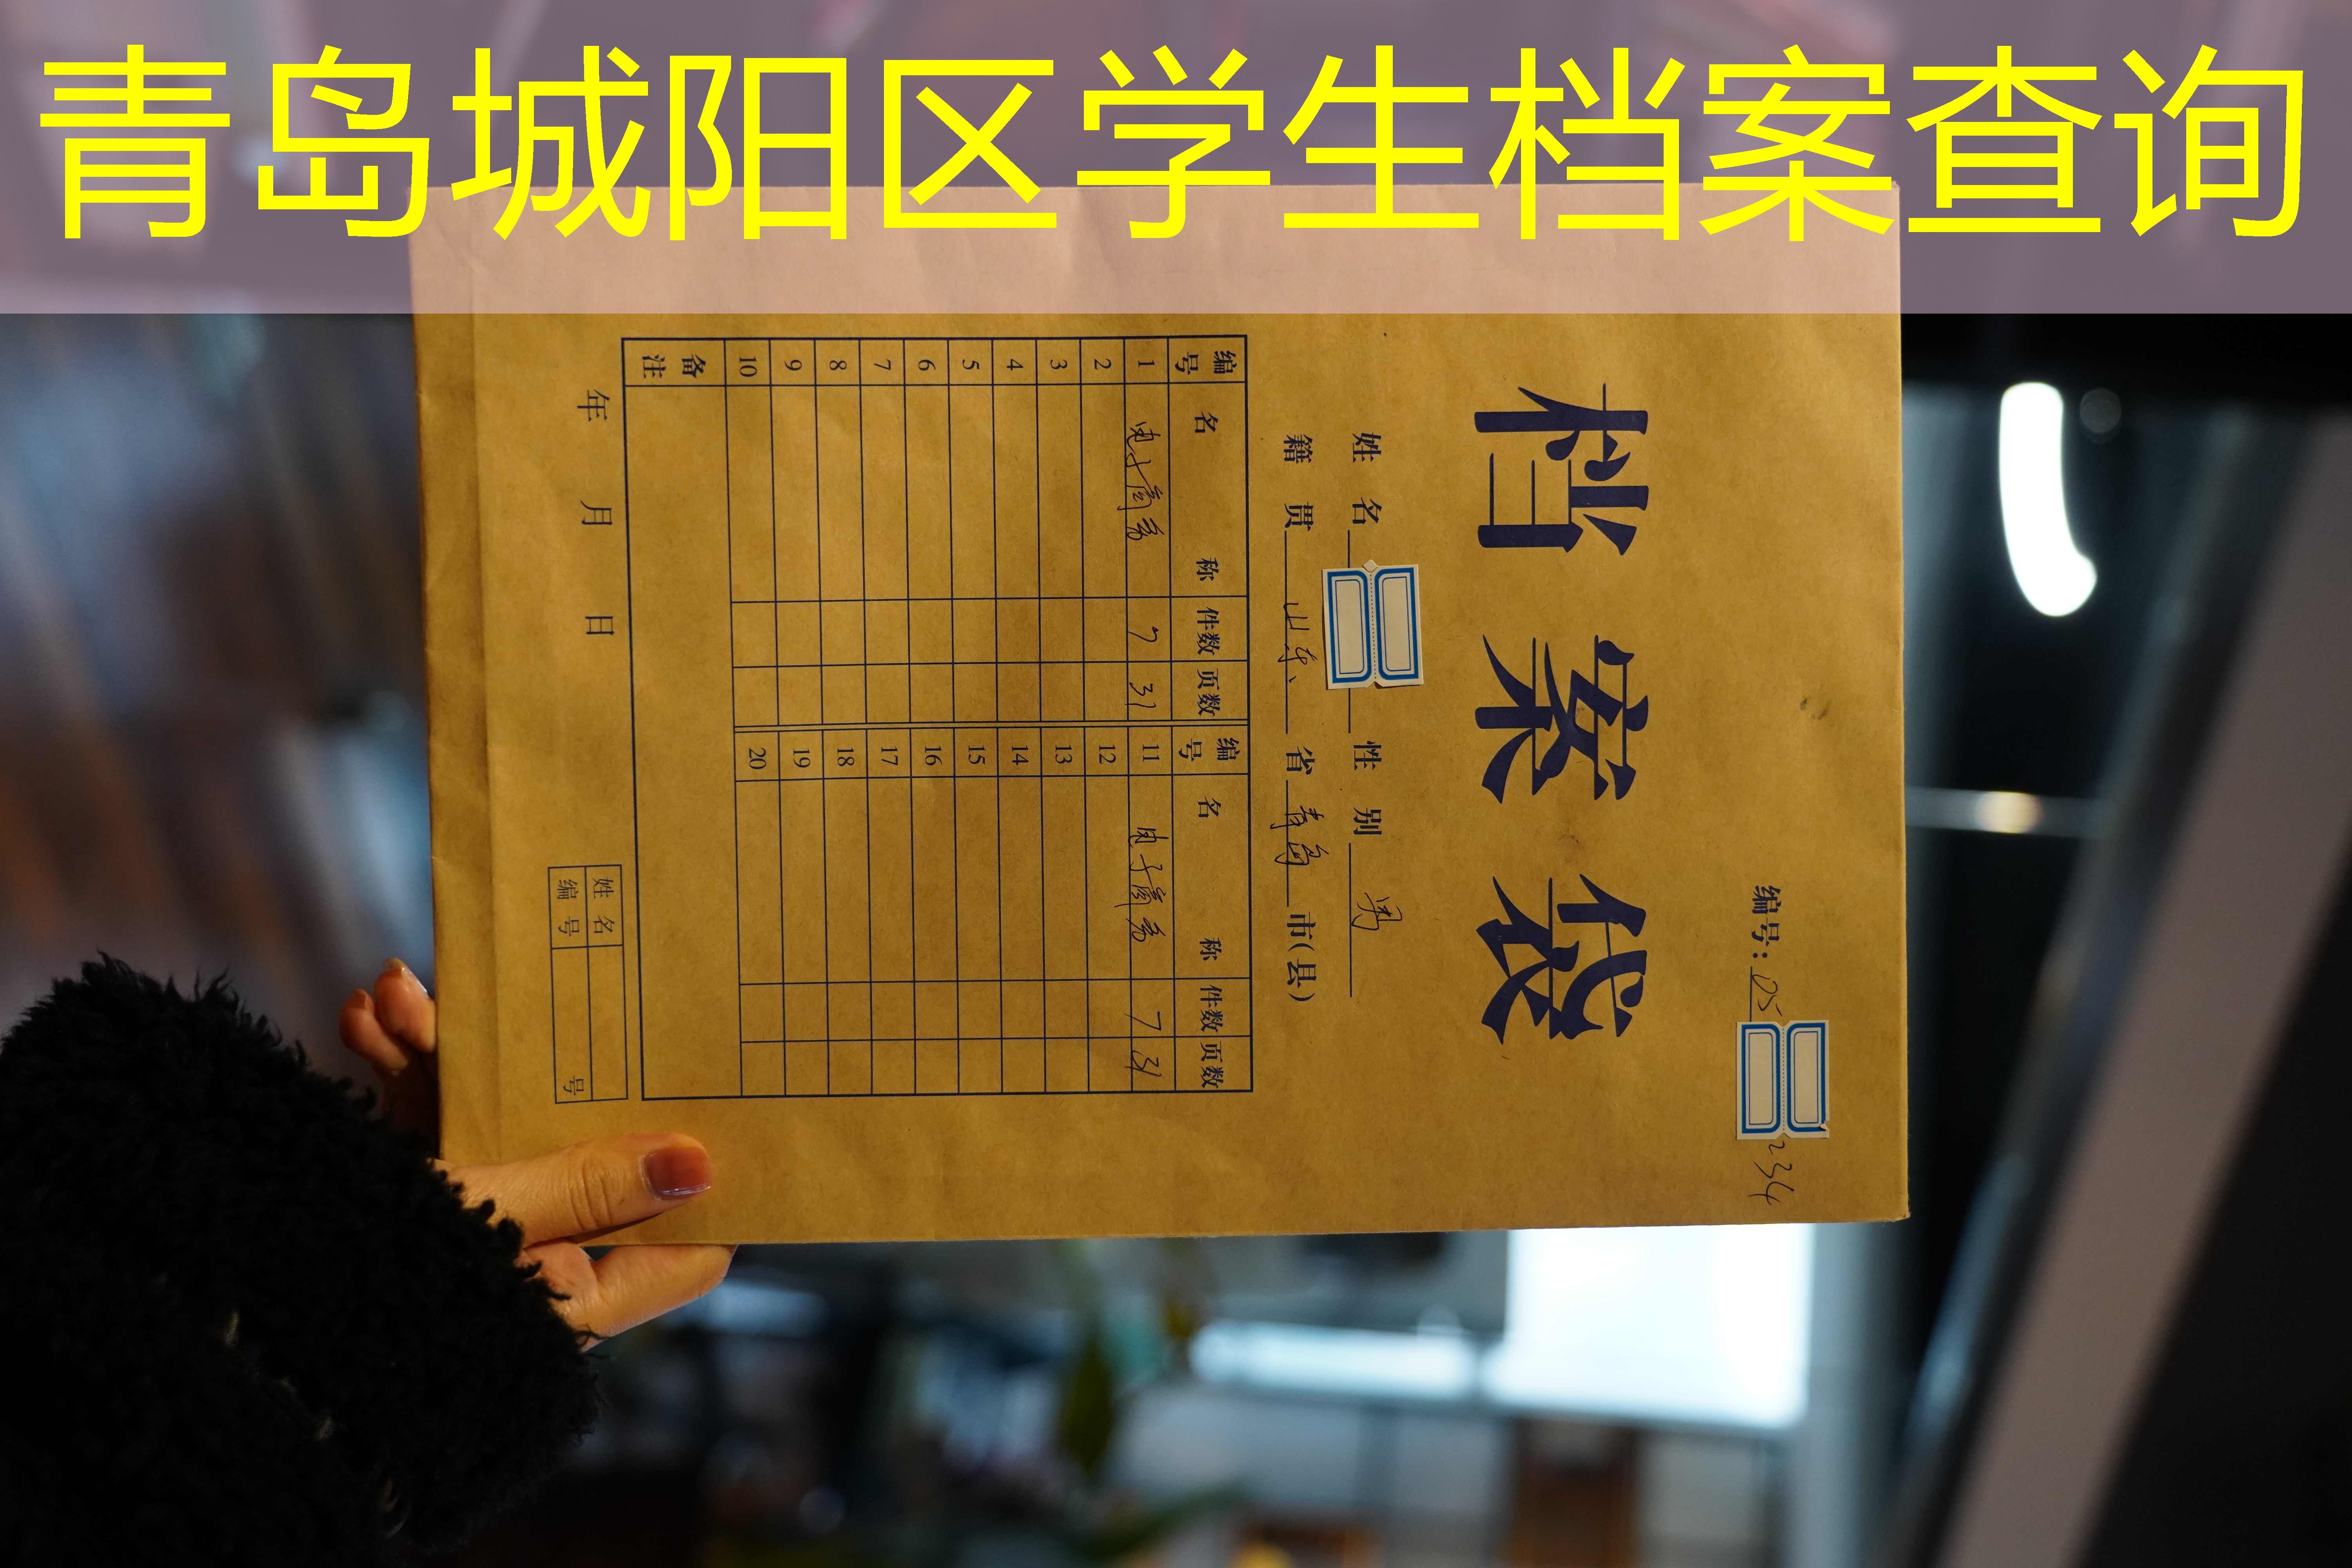 青岛城阳区学生档案查询
编号：05 234
档案袋
姓名 性别 男
籍贯 山东 省 青岛 市(县)
编号 名称 件数 页数 编号 名称 件数 页数
1 电子商务 7 31 11 电子商务 7 31
2 12
3 13
4 14
5 15
6 16
7 17
8 18
9 19
10 20
备注
年 月 日
姓名
编号 号